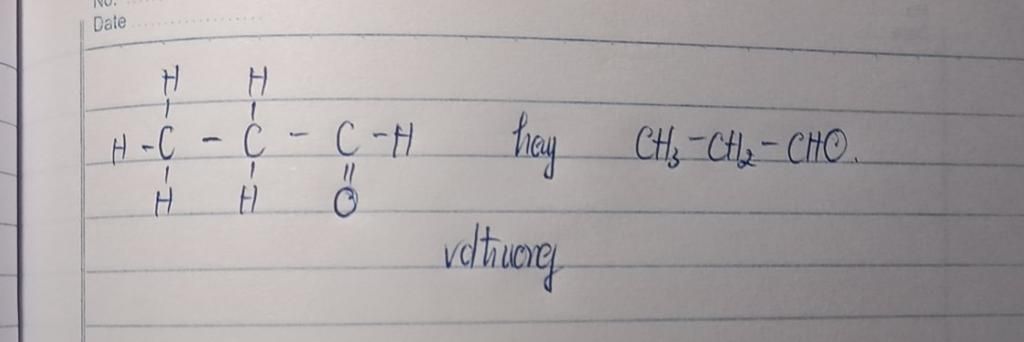 No.
Date
H H
H - C - C - C - H hay CH₃ - CH₂ - CHO.
H H O
vdtruong